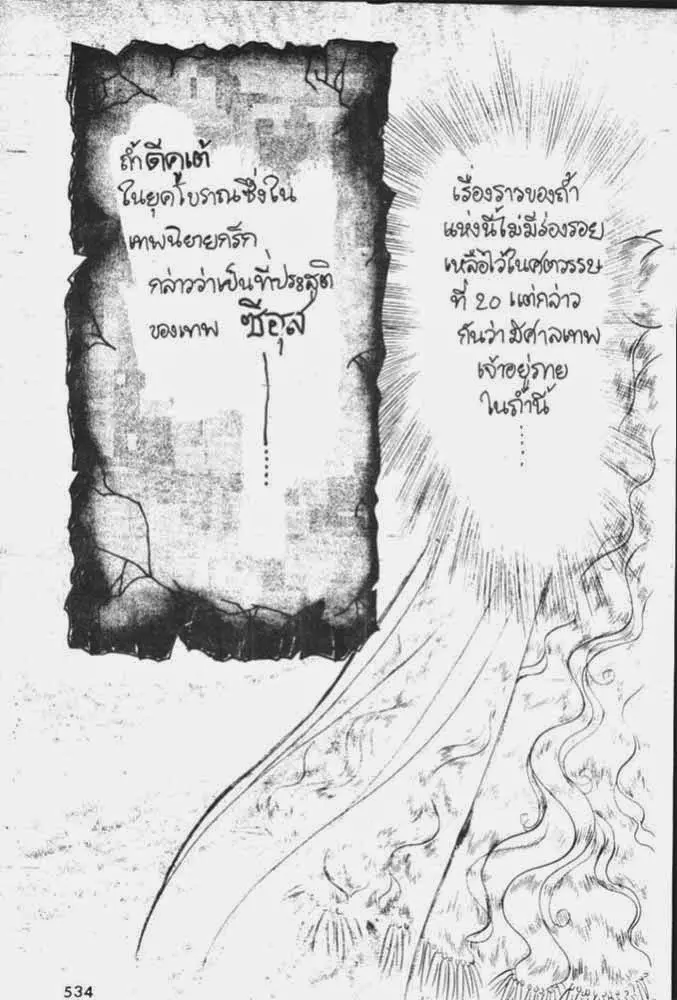 ถ้ำดีคูเต้
ในยุคโบราณซึ่งใน
เทพนิยายกรีก
กล่าวว่าเป็นที่ประสูติ
ของเทพ ซีอุส
......
เรื่องราวของถ้ำ
แห่งนี้ไม่มีร่องรอย
เหลือไว้ในศตวรรษ
ที่ 20 แต่กล่าว
กันว่ามีศาลเทพ
เจ้าอยู่ภาย
ในถ้ำนี้
.....
534